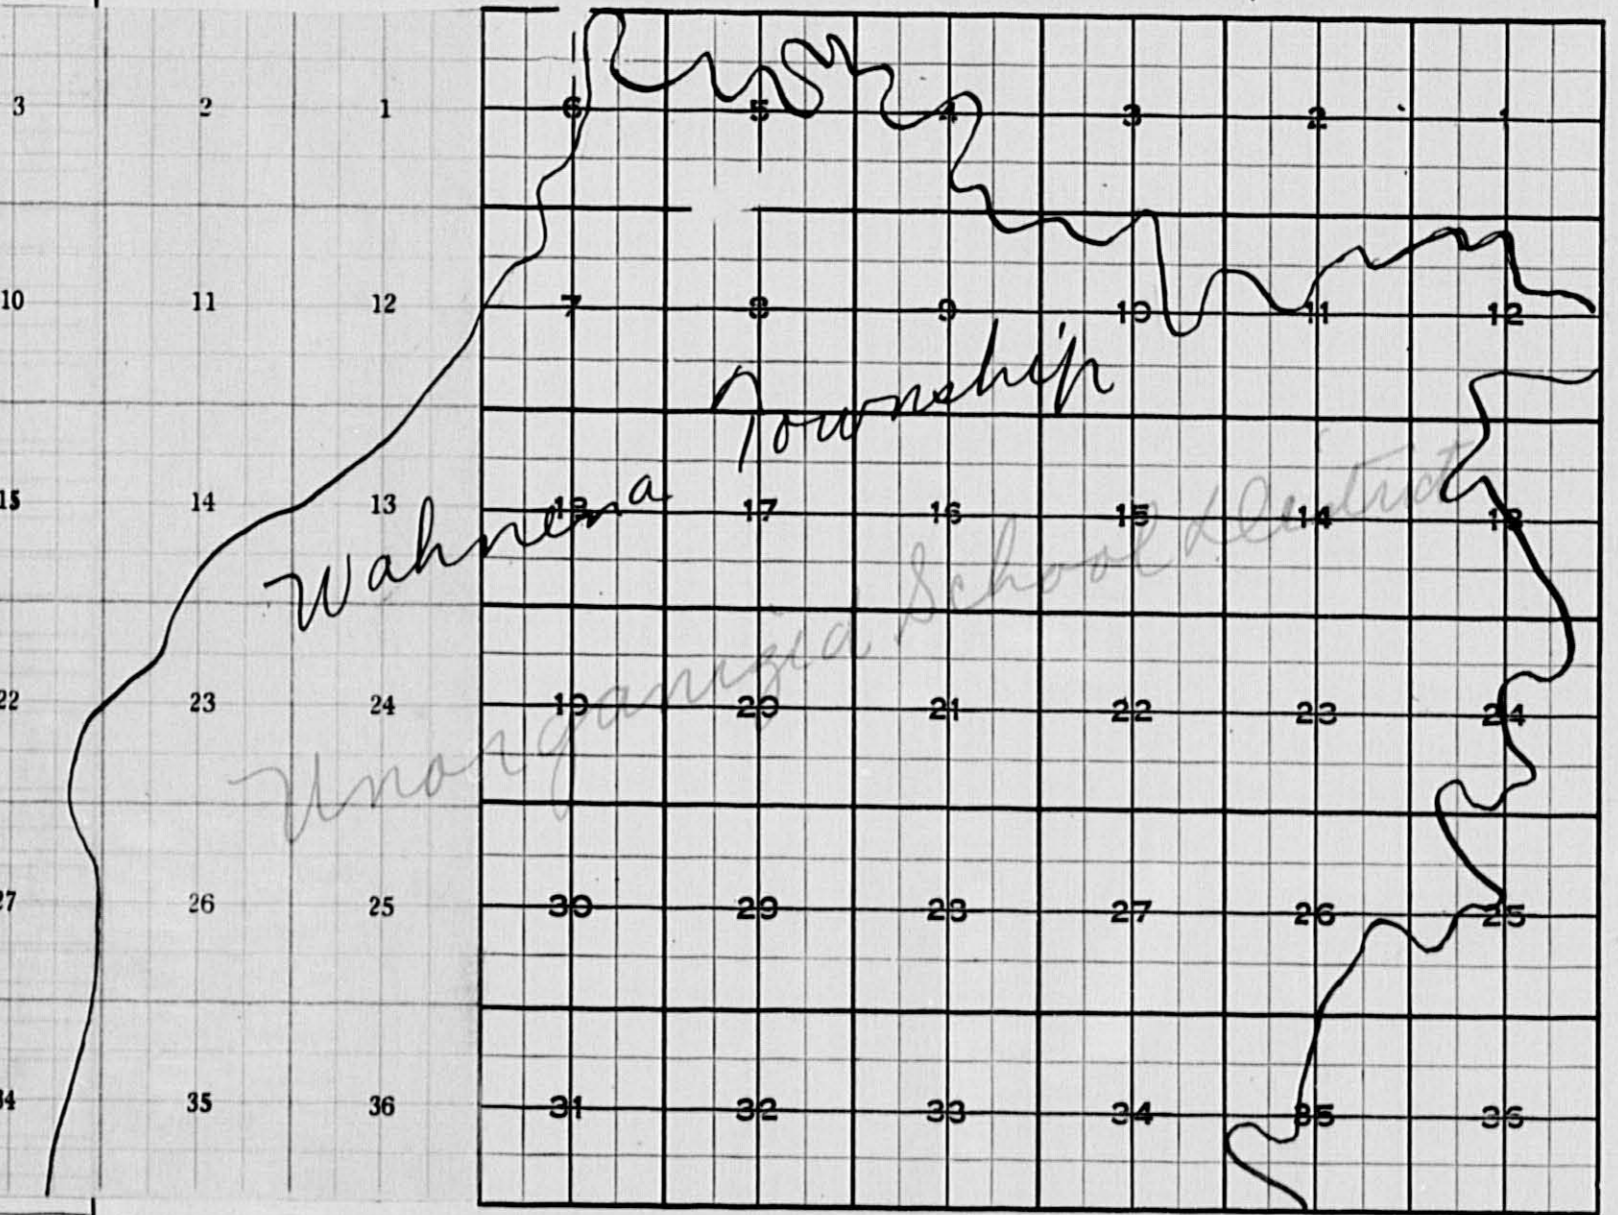 3 2 1 6 5 4 3 2 1
10 11 12 7 8 9 10 11 12
Township
15 14 13 18 17 16 15 14 13
Wahnena
Unorganizid School District
22 23 24 19 20 21 22 23 24
27 26 25 30 29 28 27 26 25
34 35 36 31 32 33 34 35 36